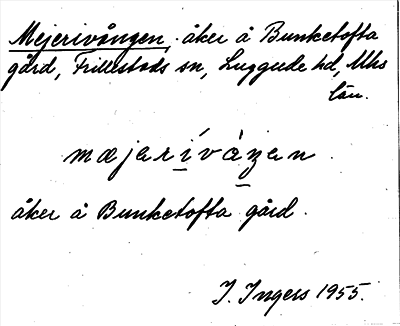 Mejerivången, åker å Bunketofta
gård, Frillestads sn, Luggude hd, Mhs
län.
mæjerívàŋen.
åker å Bunketofta gård.
I. Ingers 1955.